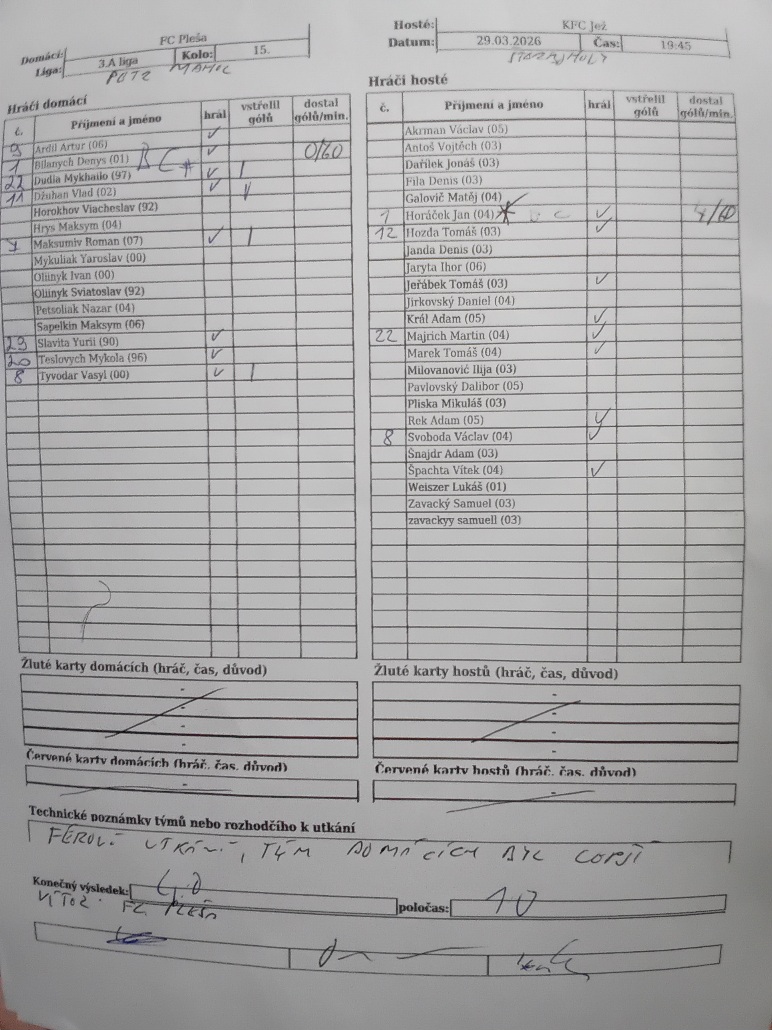 FC Pleša
Domácí:
3.A liga
Kolo:
15.
Liga:
Hosté:
KFC Jež
Datum:
29.03.2026
Čas:
19:45
Hráči domácí
č.
Příjmení a jméno
hrál
vstřelil gólů
dostal gólů/min.
9 Ardil Artur (06) ✓
1 Bilanych Denys (01) ✓ 0/60
22 Dudia Mykhailo (97) ✓ |
11 Dzhuhan Vlad (02) ✓
Horokhov Viacheslav (92)
Hrys Maksym (04)
7 Maksumiv Roman (07) ✓ |
Mykuliak Yaroslav (00)
Oliinyk Ivan (00)
Oliinyk Sviatoslav (92)
Petsoliak Nazar (04)
Sapelkin Maksym (06)
23 Slavita Yurii (90) ✓
20 Teslovych Mykola (96) ✓
8 Tyvodar Vasyl (00) ✓ |
Hráči hosté
č.
Příjmení a jméno
hrál
vstřelil gólů
dostal gólů/min.
Akrman Václav (05)
Antoš Vojtěch (03)
Dařílek Jonáš (03)
Fila Denis (03)
Galovič Matěj (04)
1 Horáček Jan (04) ✓ 4/60
12 Hozda Tomáš (03) ✓
Janda Denis (03)
Jaryta Ihor (06)
Jeřábek Tomáš (03) ✓
Jirkovský Daniel (04)
Král Adam (05) ✓
22 Majrich Martin (04) ✓
Marek Tomáš (04) ✓
Milovanović Ilija (03)
Pavlovský Dalibor (05)
Pliska Mikuláš (03)
Rek Adam (05) ✓
8 Svoboda Václav (04) ✓
Šnajdr Adam (03)
Špachta Vítek (04) ✓
Weiszer Lukáš (01)
Zavacký Samuel (03)
zavackyy samuell (03)
Žluté karty domácích (hráč, čas, důvod)
-
-
-
-
Červené karty domácích (hráč, čas, důvod)
-
Žluté karty hostů (hráč, čas, důvod)
-
-
-
-
Červené karty hostů (hráč, čas, důvod)
-
Technické poznámky týmů nebo rozhodčího k utkání
FÉROVÉ UTKÁNÍ, TÝM DOMÁCÍCH BYL LEPŠÍ
Konečný výsledek:
poločas:
VÍTĚZ: FC PLEŠA